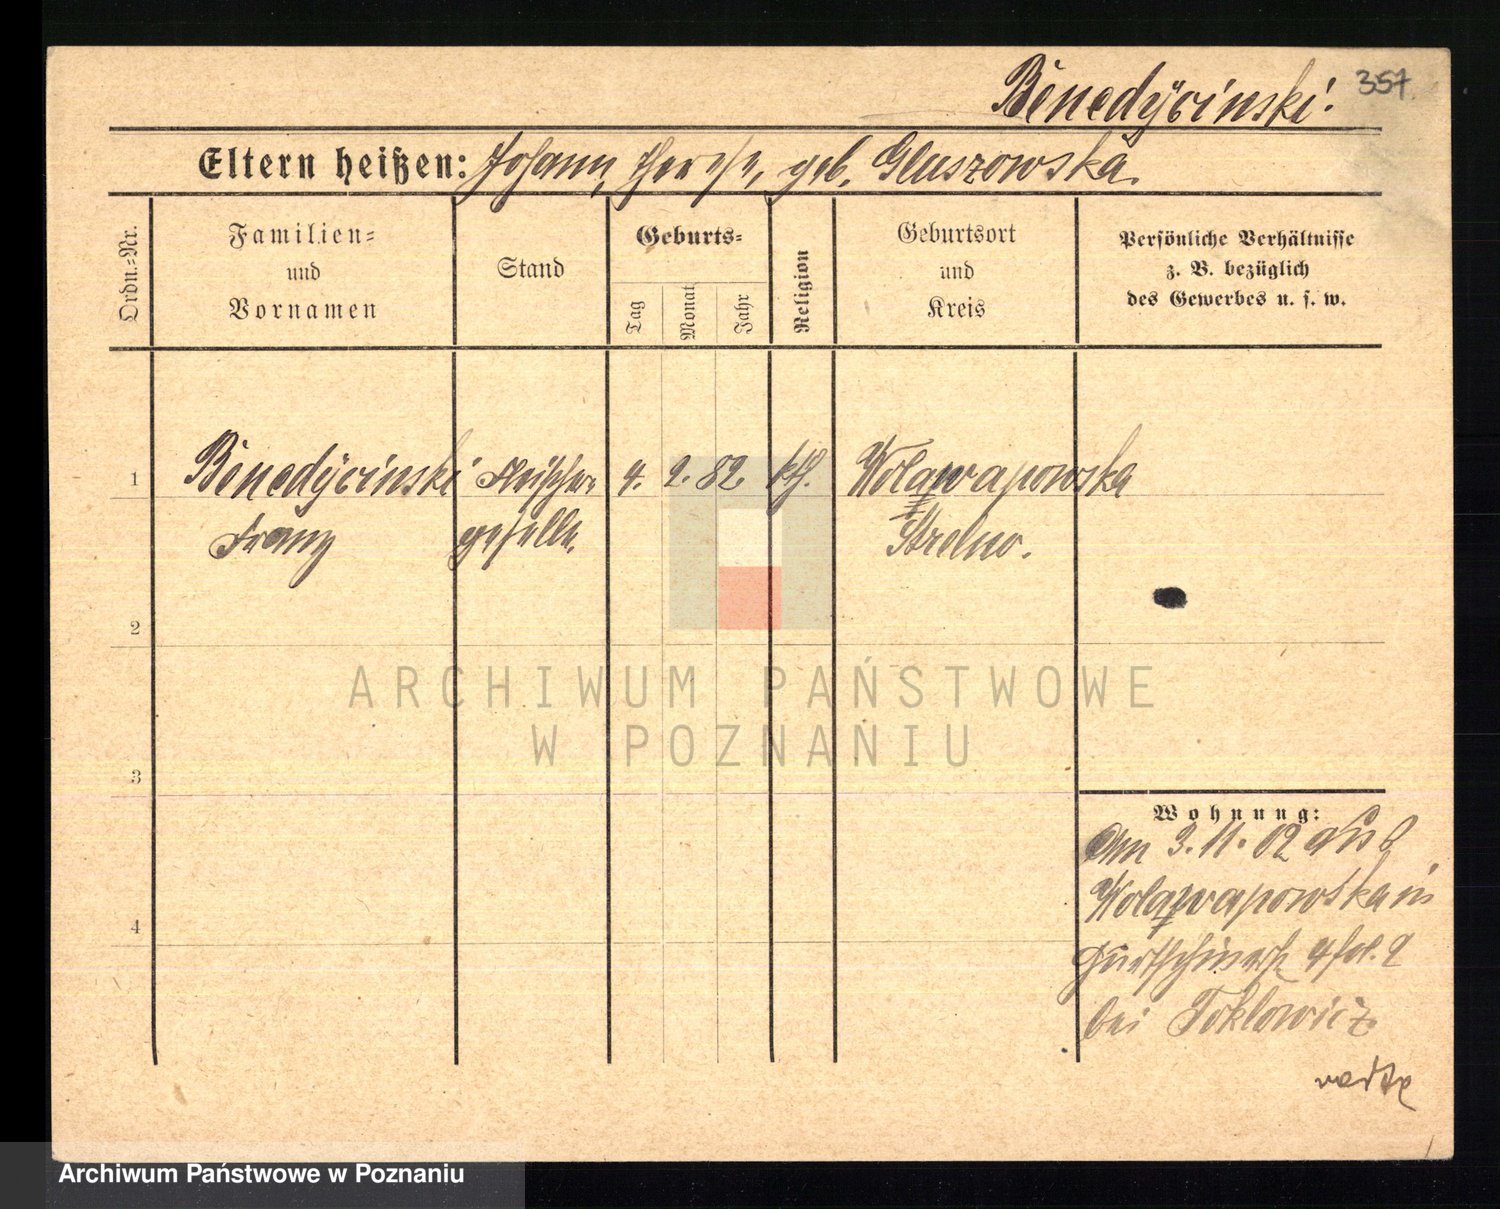 Benedÿcinski.
357.
Eltern heißen: Johann, Therese, geb. Gluszowska.
Ordn.-Nr.
Familien-
und
Vornamen
Stand
Geburts-
Tag
Monat
Jahr
Religion
Geburtsort
und
Kreis
Persönliche Verhältnisse
z. B. bezüglich
des Gewerbes u. s. w.
1
Benedÿcinski Fleischer- 4. 2. 82. kth. Wolawapowska
Franz geselle. Strelno.
2
ARCHIWUM PAŃSTWOWE
W POZNANIU
3
Wohnung:
Am 3. 11. 02 aus
Wolawapowska in
4
Gurtschinerstr. 4
bei Toklowicz
verte
Archiwum Państwowe w Poznaniu